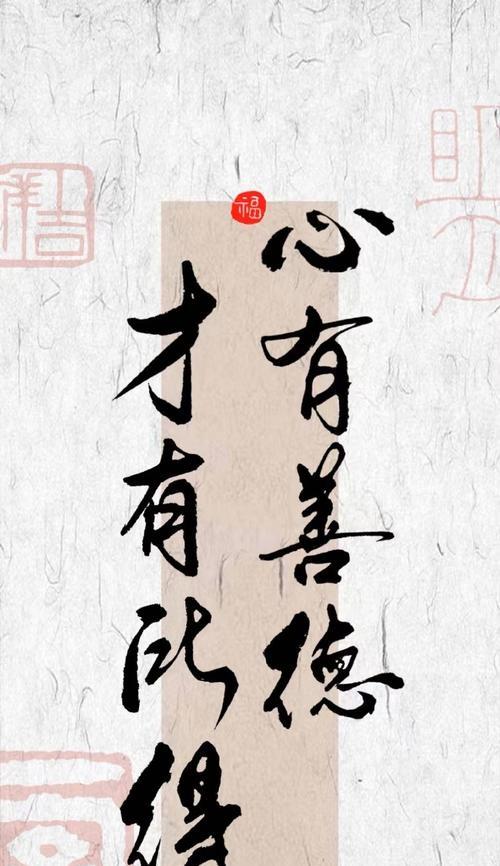 心有善德
才有所得
福